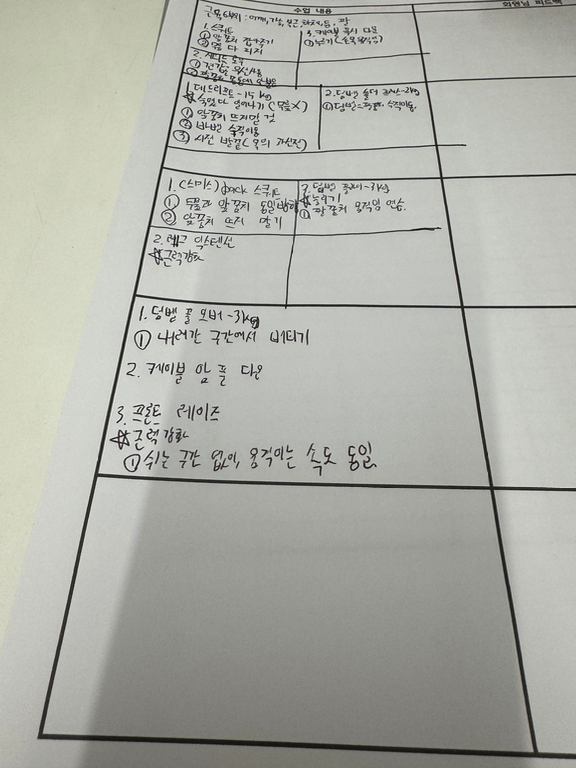 수업 내용
회원님 피드백
근육부위 : 어깨, 가슴, 복근, 하체, 등, 팔
1. 스쿼트
① 앞꿈치 잡아주기
② 몸 다 펴지
3. 케이블 푸시 다운
① 누르기
1. 데드리프트 - 15kg
☆ 숙였다 일어나기 (무릎X)
① 앞꿈치 뜨지말 것
② 바벨 수직이동
③ 시선 발끝
2. 덤벨 숄더 프레스 - 2kg
① 덤벨 수직이동.
1. (스미스) back 스쿼트
① 무릎과 앞꿈치 동일방향
② 앞꿈치 뜨지 말기
3. 덤벨 - 3kg
☆ 하기
① 팔꿈치 움직임 연습.
2. 레그 익스텐션
☆ 근력강화
1. 덤벨 풀 오버 - 3kg
① 내려간 구간에서 버티기
2. 케이블 암 풀 다운
3. 프론트 레이즈
☆ 근력강화
① 쉬는 구간 없이, 움직이는 속도 동일